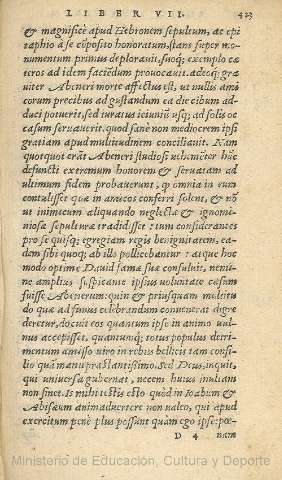 LIBER VII. 423
& magnificè apud Hebronem sepultum, ac epi
taphio à se cōposito honoratum, stans super mo-
numentum primus deplorauit, suoq; exemplo cæ
teros ad idem faciēdum prouocauit. adeoq; gra
uiter Abeneri morte affectus est, ut nullis ami
corum precibus ad gustandum ea die cibum ad-
duci potuerit, sed iuratus ieiuniū usq; ad solis oc
casum seruauerit. quod sanè non mediocrem ipsi
gratiam apud multitudinem conciliauit. Nam
quotquot erāt Abeneri studiosi uehemēter hūc
defuncti extremum honorem & seruatam ad
ultimum fidem probauerunt, q̇ omnia in eum
contulisset quæ in amicos conferri solent, & nō
ut inimicum aliquando neglectæ & ignomi-
niosæ sepulturæ tradidisset: tum considerantes
pro se quisq; egregiam regis benignitatem, ea-
dem sibi quoq; ab illo pollicebantur: atque hoc
modo optime Dauid famæ suæ consuluit, nemi-
ne amplius suspicante ipsius uoluntate cæsum
fuisse Abenerum: quin & priusquam multitu
do quæ ad funus celebrandum conuenerat digre
deretur, docuit eos quantum ipse in animo uul-
nus accepisset, quantumq; totus populus detri-
mentum amisso uiro in rebus bellicis tam consi-
lio quā manu præstantissimo, sed Deus, inquit,
qui uniuersa gubernat, necem huius inultam
non sinet. Is mihi testis esto quòd in Ioabum &
Abisæum animaduertere non ualeo, qui apud
exercitum penè plus possunt quàm ego ipse: pœ-
D 4 nam
Ministerio de Educación, Cultura y Deporte